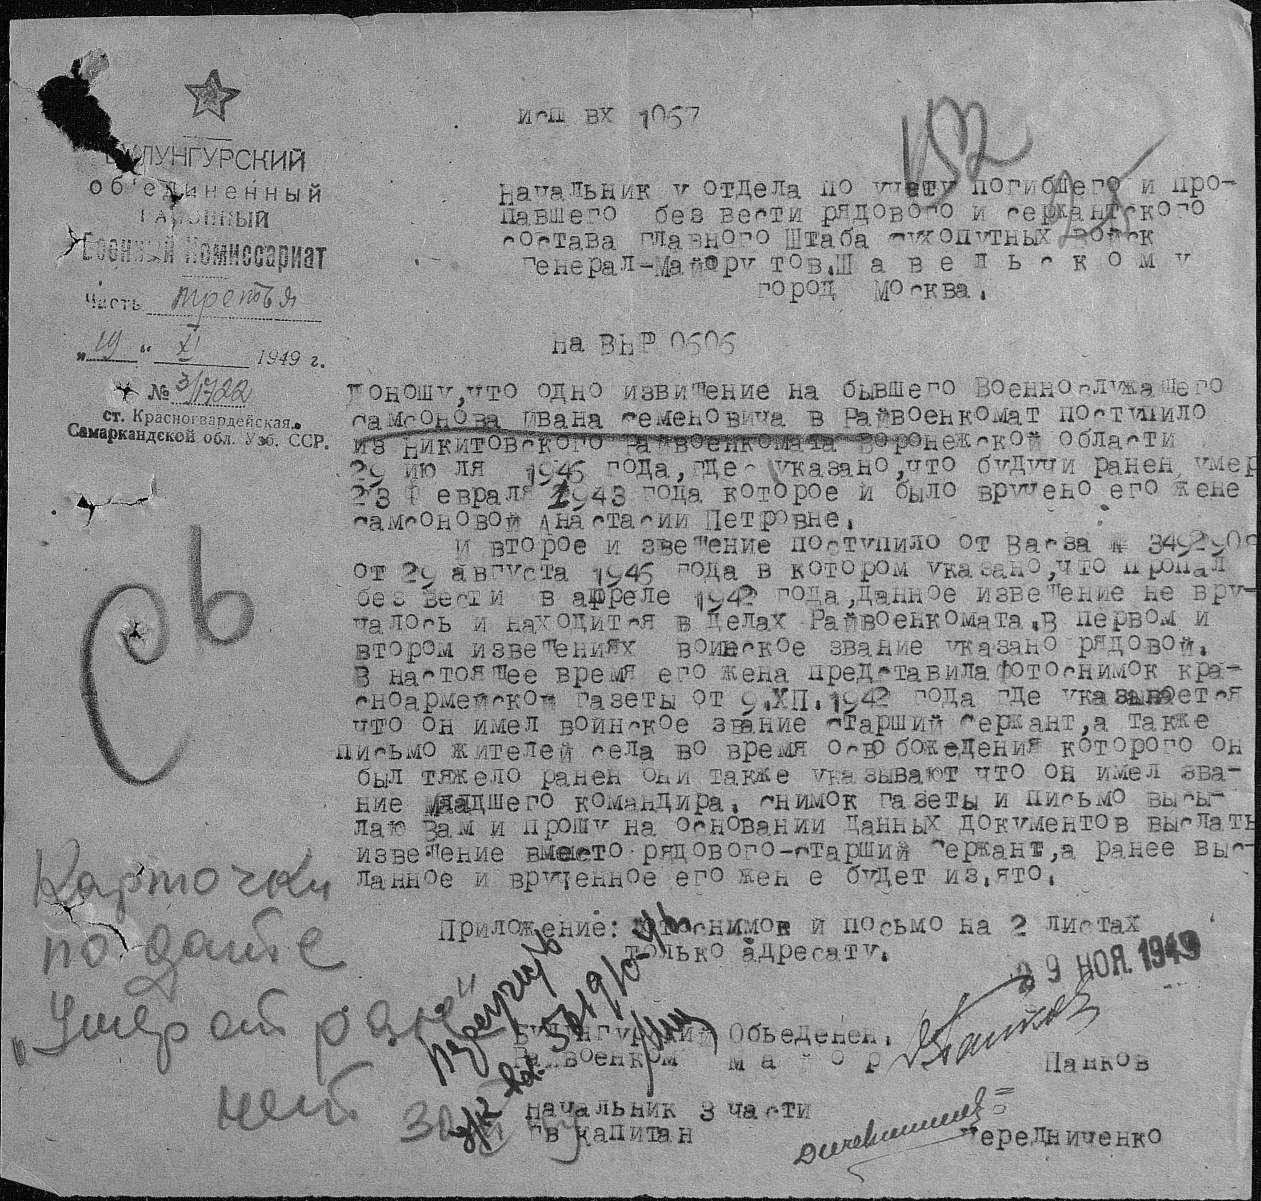 БУЛУНГУРСКИЙ
об'единенный
РАЙОННЫЙ
Военный Комиссариат
Часть третья
"19" XI 1949 г.
№ 3/1722
ст. Красногвардейская.
Самаркандской обл. Узб. ССР.
исп вх 1067
начальник у отдела по учету погибшего и про-
павшего без вести рядового и сержантского
состава главного Штаба сухопутных войск
генерал-Майору тов.Ш а в е л ь с к о м у
город Москва.
на ВнР 0606
Доношу,что одно извищение на бывшего Военнослужащего
самсонова Ивана семеновича в Райвоенкомат поступило
из никитовского райвоенкомата Воронежской области
29 ию ля 1946 года,где указано,что будучи ранен умер
23 ф евраля 1943 года которое и было вручено его жене
самсоновой Анастасии Петровне.
и второе и звещение поступило от
от 29 августа 1946 года в котором указано,что пропал
без вести в апреле 1942 года,данное извещение не вру-
чалось и находится в делах Райвоенкомата.в первом и
втором извещениях воинское звание указано рядовой.
В настоящее время его жена представила фотоснимок кра-
сноармейской газеты от 9.XII.1942 года где указывается
что он имел воинское звание старший сержант,а также
письмо жителей села во время освобожедения которого он
был тяжело ранен они также указывают что он имел зва-
ние младшего командира. снимок газеты и письмо высы-
лаю Вам и прошу на основании данных документов выслать
извещение вместо рядового-старший сержант,а ранее выс-
ланное и врученное его жен е будет из,ято.
Приложение: фотоснимок и посьмо на 2 листах
только адресату.
29 НОЯ. 1949
Булунгурский Обьеденен.
Райвоенком м а й о р Панков
начальник 3 части
гв капитан Чередниченко
Карточки
по дате
"Умер от ран"
нет